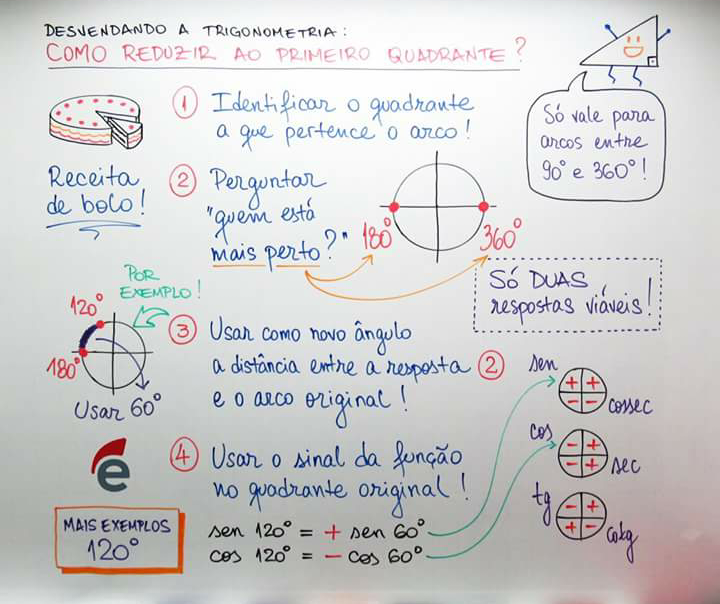 DESVENDANDO A TRIGONOMETRIA:
COMO REDUZIR AO PRIMEIRO QUADRANTE?
Só vale para
arcos entre
90° e 360°!
Receita
de bolo!
1 Identificar o quadrante
a que pertence o arco!
2 Perguntar
"quem está
mais perto?"
180°
360°
Só DUAS
respostas viáveis!
POR
EXEMPLO!
120°
180°
Usar 60°
3 Usar como novo ângulo
a distância entre a resposta 2
e o arco original!
4 Usar o sinal da função
no quadrante original!
sen
+ +
- -
cossec
cos
- +
- +
sec
tg
- +
+ -
cotg
e
MAIS EXEMPLOS
120°
sen 120° = + sen 60°
cos 120° = - cos 60°